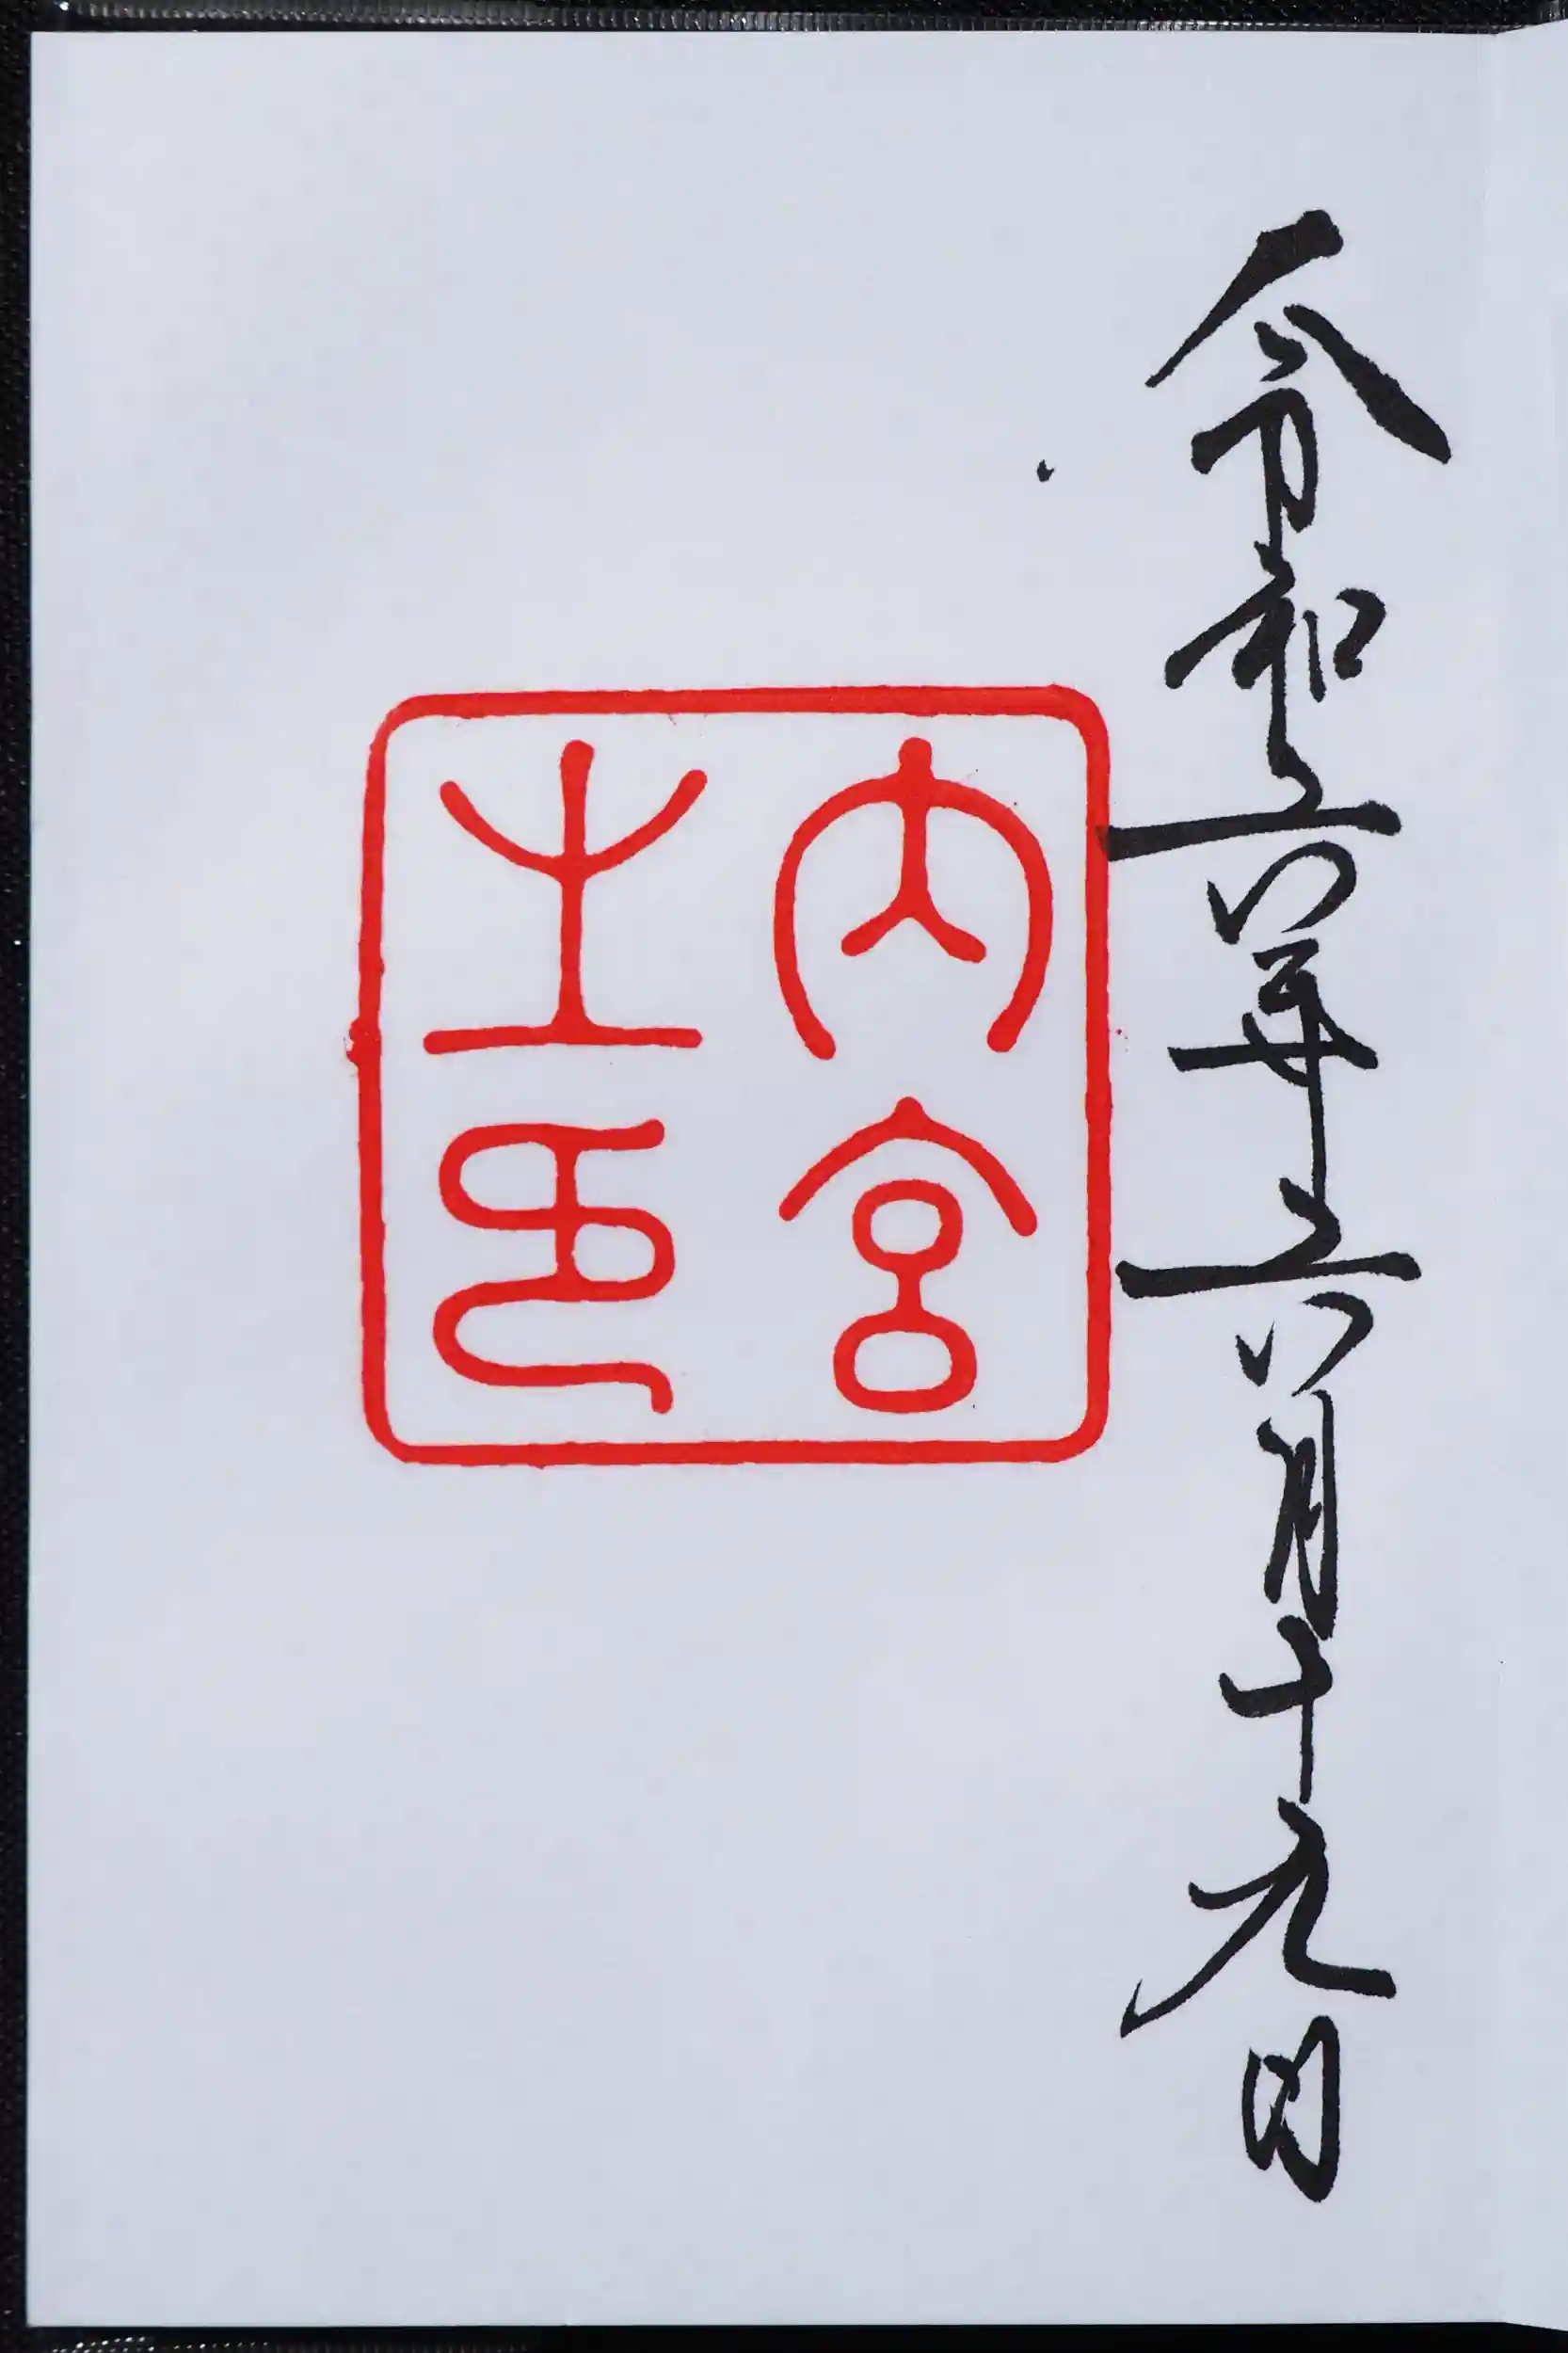 令和六年六月十九日
内宮
之印